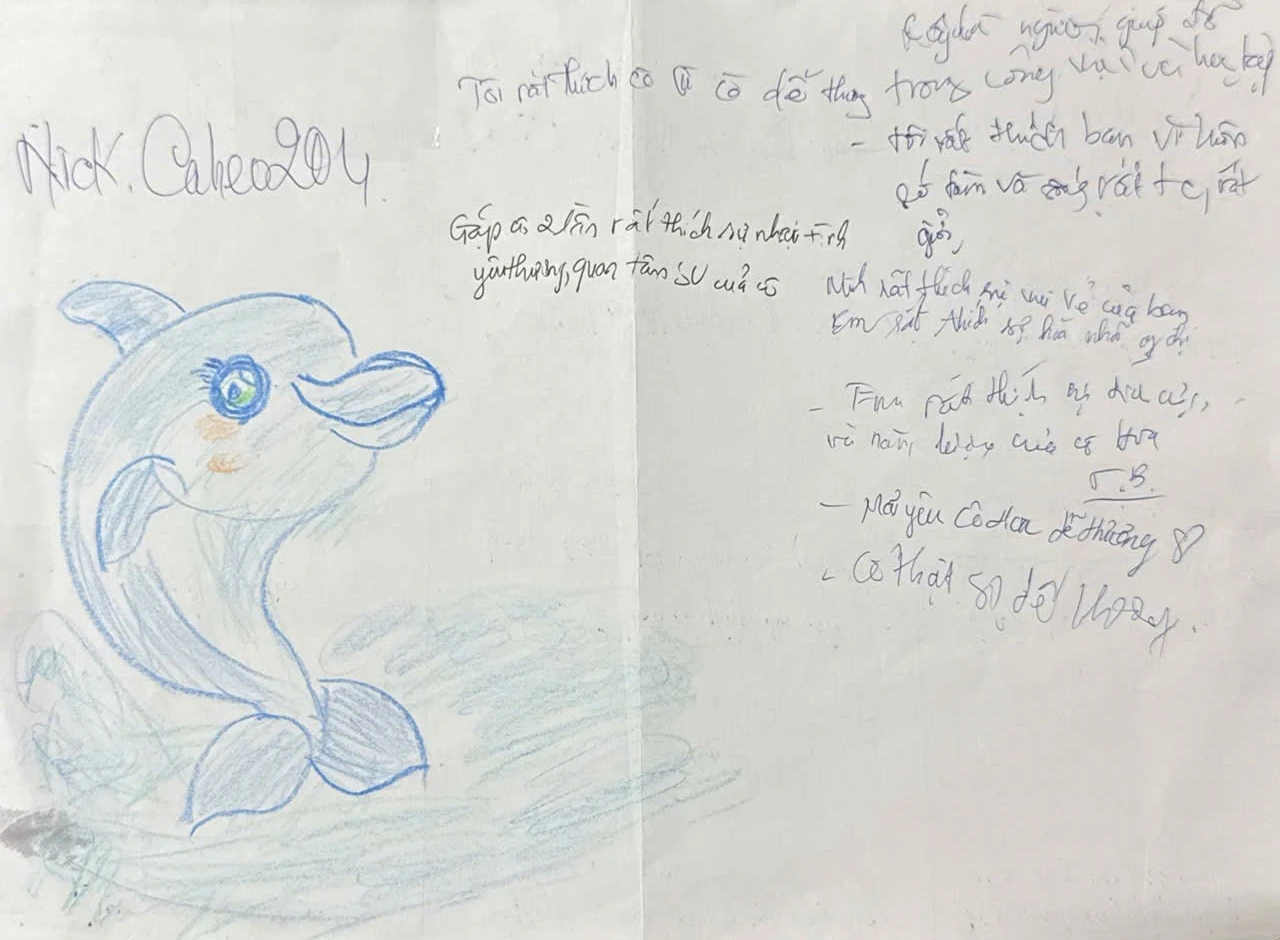 Nick. Caheo204
Tôi rất thích cô vì cô dễ thương
Gặp cô 2 lần rất thích sự nhiệt tình
yêu thương, quan tâm SV của cô
người, giúp đỡ
trong công việc và học tập
- tôi rất thích bạn vì luôn
và rất
giỏi,
Mình rất thích sự vui vẻ của bạn
Em rất thích sự hòa nhã chị
- Em rất thích sự
và năng lượng của cô Hoa
T.B.
- Mãi yêu Cô Hoa dễ thương
- Cô thật sự dễ thương.